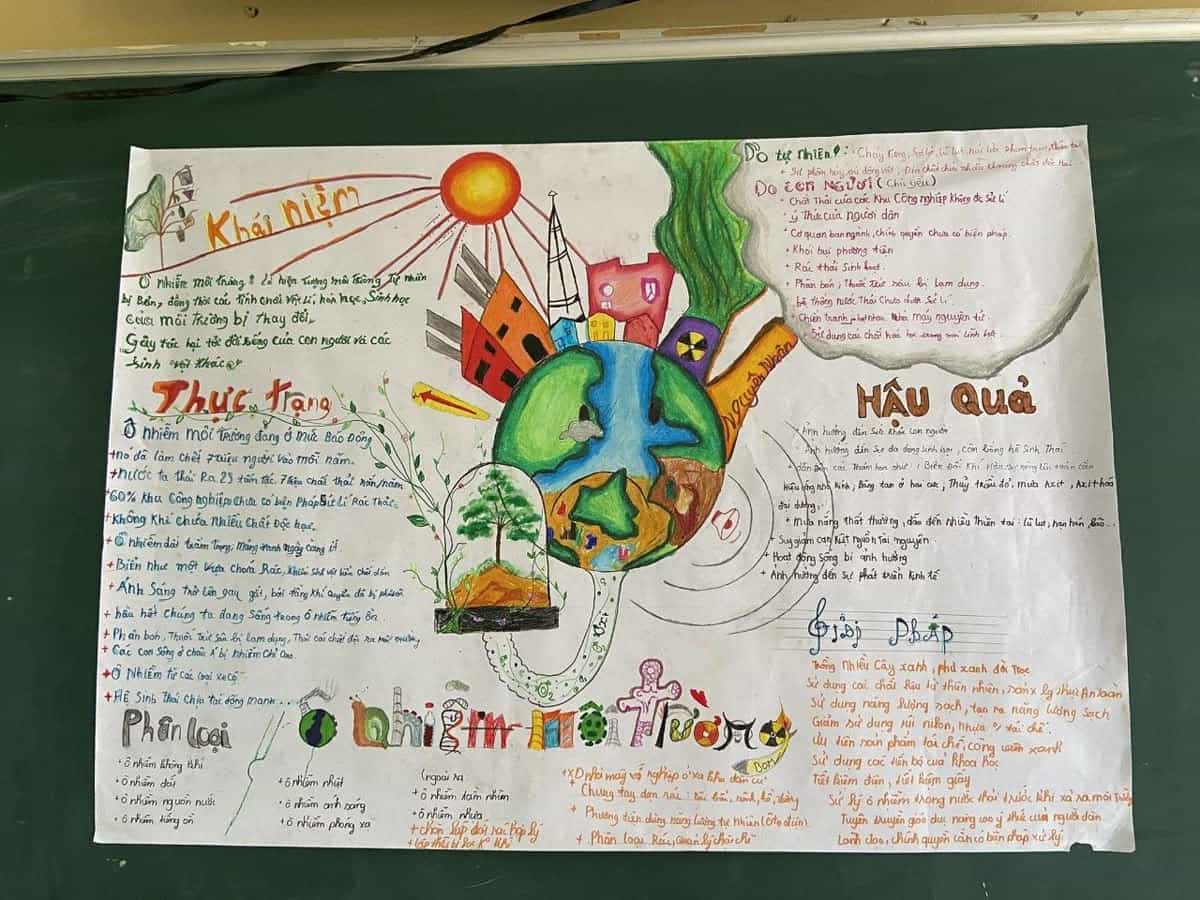 Khái niệm
Ô nhiễm môi trường: là hiện tượng môi trường tự nhiên
bị Bẩn, đồng thời các tính chất Vật Lí, hóa học, Sinh học
của môi Trường bị thay đổi,
Gây tác hại tới đời sống của con người và các
sinh vật khác
Thực trạng
Ô nhiễm môi trường đang ở Mức Báo Động
+nó đã làm chết 7 triệu người vào mỗi năm.
+nước ta thải Ra 23 tấn rác, 7 triệu chất thải rắn/năm
+60% khu Công nghiệp chưa có biện Pháp Sử Lí Rác Thải
+Không Khí chứa Nhiều Chất Độc học.
+ Ô nhiễm đất trầm trọng, mảng xanh Ngày càng ít
+ Biển như một vựa chứa Rác,
+ Ánh Sáng trở lên gay gắt, bởi tầng khí quyển đã bị
+ hầu hết Chúng ta đang sống trong ô nhiễm tiếng ồn.
+ Phân bón, Thuốc trừ sâu bị lạm dụng,
+ Các con sông ở châu Á bị Nhiễm Chì Cao.
+ Ô Nhiễm từ các loại xe cộ
+ HỆ Sinh Thái Chịu tác động mạnh....
Phân loại
+ ô nhiễm không khí
+ ô nhiễm đất
+ ô nhiễm nguồn nước
+ ô nhiễm tiếng ồn
+ ô nhiễm nhiệt
+ ô nhiễm ánh sáng
+ ô nhiễm phóng xạ
(ngoài ra
+ ô nhiễm tầm nhìn
+ ô nhiễm nhựa
+ chôn lấp đốt rác hợp lý
Ô nhiễm môi Trường
O2
Nguyên Nhân
Do tự nhiên: Cháy Rừng,
Do con Người (chủ yếu)
+ Chất Thải của các Khu Công nghiệp không đc Sử Lí
ý Thức của người dân
+ Cơ quan ban ngành, chính quyền chưa có biện pháp.
+ Khói bụi phương tiện
+ Rác thải Sinh hoạt.
+ Phân bón, Thuốc Trừ sâu bị lạm dụng.
hệ thống nước Thải Chưa được Sử Lí
Chiến tranh, nhà máy nguyên tử.
HẬU QUẢ
+Ảnh hưởng đến Sức khỏe con người
Ảnh hưởng đến Sự đa dạng sinh học, cân bằng hệ Sinh Thái
Hiệu ứng nhà kính, Băng tan ở hai cực, Thuỷ triều đỏ, mưa Axit, Axit hóa
đại dương.
+ Mưa nắng thất thường, dẫn đến nhiều thiên tai: lũ lụt, hạn hán, bão...
+ Suy giảm cạn kiệt nguồn tài nguyên
+ Hoạt động sống bị ảnh hưởng
+ Ảnh hưởng đến sự phát triển kinh tế
Giải Pháp
Trồng Nhiều Cây xanh, phủ xanh đồi trọc
Sử dụng năng lượng sạch, tạo ra năng lượng sạch
Giảm sử dụng túi nilon, nhựa
Ưu tiên sản phẩm tái chế, công viên xanh
Sử dụng các tiến bộ của Khoa học
Tiết kiệm điện, tiết kiệm giấy
Sử lý ô nhiễm trong nước thải trước khi xả ra môi trường
Tuyên truyền giáo dục nâng cao ý thức của người dân
Lãnh đạo, chính quyền cần có biện pháp xử lý
+ Phương tiện dùng năng lượng tự nhiên
+ Phân loại Rác,